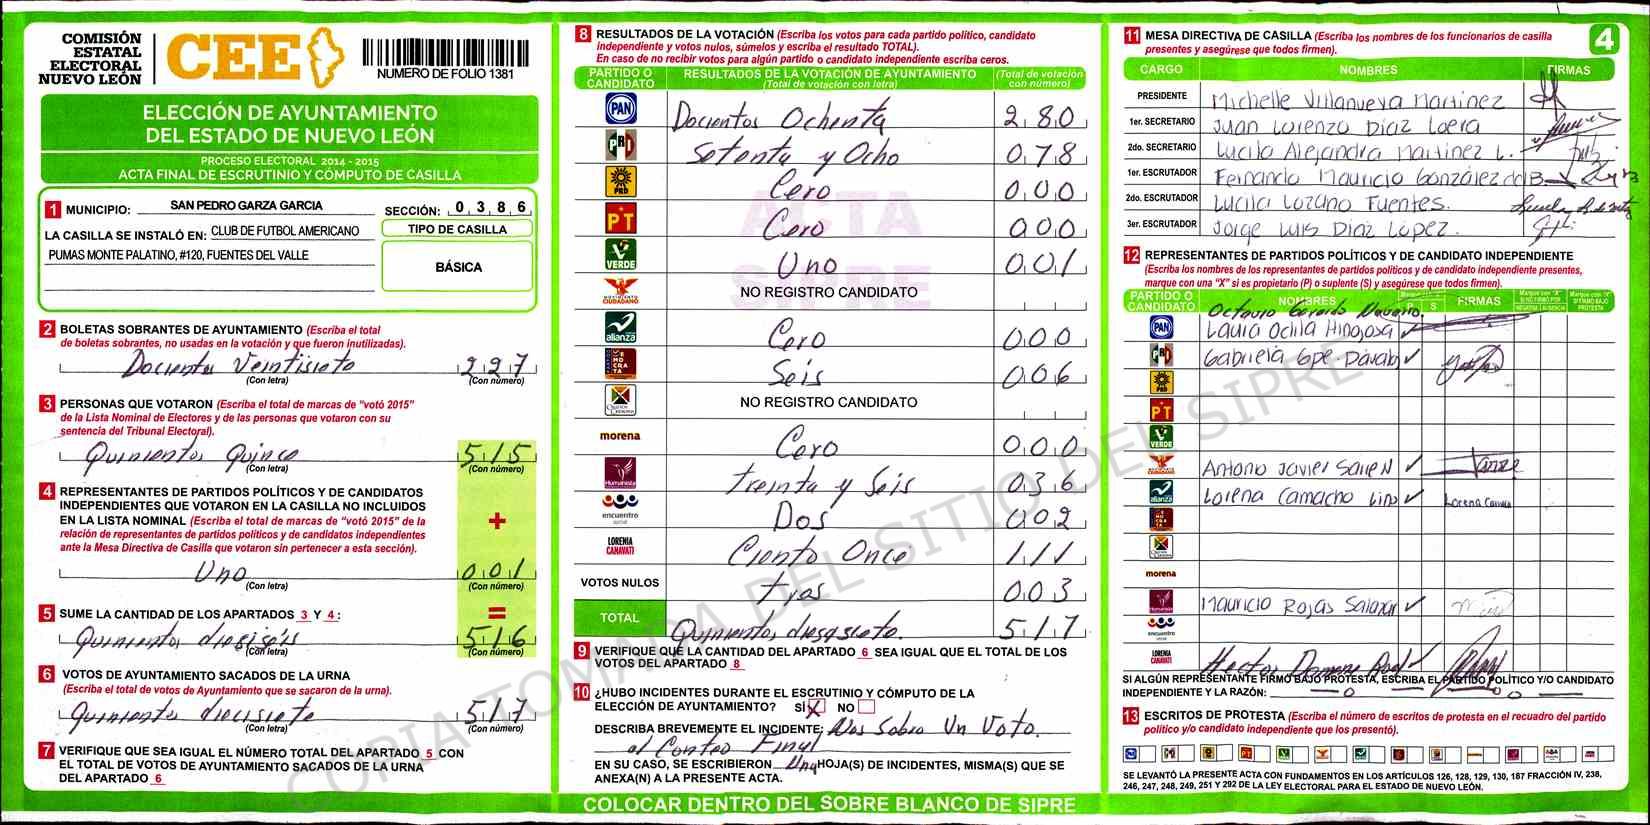 COMISIÓN
ESTATAL
ELECTORAL
NUEVO LEÓN
CEE
NUMERO DE FOLIO 1381
ELECCIÓN DE AYUNTAMIENTO
DEL ESTADO DE NUEVO LEÓN
PROCESO ELECTORAL 2014 - 2015
ACTA FINAL DE ESCRUTINIO Y CÓMPUTO DE CASILLA
1 MUNICIPIO: SAN PEDRO GARZA GARCIA SECCIÓN: 0 3 8 6
LA CASILLA SE INSTALÓ EN: CLUB DE FUTBOL AMERICANO
PUMAS MONTE PALATINO, #120, FUENTES DEL VALLE
TIPO DE CASILLA
BÁSICA
2 BOLETAS SOBRANTES DE AYUNTAMIENTO (Escriba el total
de boletas sobrantes, no usadas en la votación y que fueron inutilizadas).
Docientos Veintisiete 2 2 7
(Con letra) (Con número)
3 PERSONAS QUE VOTARON (Escriba el total de marcas de “votó 2015”
de la Lista Nominal de Electores y de las personas que votaron con su
sentencia del Tribunal Electoral).
Quinientos Quince 5 1 5
(Con letra) (Con número)
4 REPRESENTANTES DE PARTIDOS POLÍTICOS Y DE CANDIDATOS
INDEPENDIENTES QUE VOTARON EN LA CASILLA NO INCLUIDOS
EN LA LISTA NOMINAL (Escriba el total de marcas de “votó 2015” de la
relación de representantes de partidos políticos y de candidatos independientes
ante la Mesa Directiva de Casilla que votaron sin pertenecer a esta sección).
+
Uno 0 0 1
(Con letra) (Con número)
5 SUME LA CANTIDAD DE LOS APARTADOS 3 Y 4 : =
Quinientos dieciséis 5 1 6
(Con letra) (Con número)
6 VOTOS DE AYUNTAMIENTO SACADOS DE LA URNA
(Escriba el total de votos de Ayuntamiento que se sacaron de la urna).
Quinientos diecisiete 5 1 7
(Con letra) (Con número)
7 VERIFIQUE QUE SEA IGUAL EL NÚMERO TOTAL DEL APARTADO 5 CON
EL TOTAL DE VOTOS DE AYUNTAMIENTO SACADOS DE LA URNA
DEL APARTADO 6
8 RESULTADOS DE LA VOTACIÓN (Escriba los votos para cada partido político, candidato
independiente y votos nulos, súmelos y escriba el resultado TOTAL).
En caso de no recibir votos para algún partido o candidato independiente escriba ceros.
PARTIDO O CANDIDATO RESULTADOS DE LA VOTACIÓN DE AYUNTAMIENTO (Total de votación con letra) (Total de votación con número)
PAN Docientos Ochenta 2 8 0
PRD Setenta y Ocho 0 7 8
PRD Cero 0 0 0
PT Cero 0 0 0
VERDE Uno 0 0 1
MOVIMIENTO CIUDADANO NO REGISTRO CANDIDATO
alianza Cero 0 0 0
DEMOCRATA Seis 0 0 6
NO REGISTRO CANDIDATO
morena Cero 0 0 0
Humanista treinta y Seis 0 3 6
encuentro social Dos 0 0 2
LORENIA CANAVATI Ciento Once 1 1 1
VOTOS NULOS tres 0 0 3
TOTAL Quinientos diesasiete. 5 1 7
ACTA
SIPRE
9 VERIFIQUE QUE LA CANTIDAD DEL APARTADO 6 SEA IGUAL QUE EL TOTAL DE LOS
VOTOS DEL APARTADO 8
10 ¿HUBO INCIDENTES DURANTE EL ESCRUTINIO Y CÓMPUTO DE LA
ELECCIÓN DE AYUNTAMIENTO? SÍ X NO
DESCRIBA BREVEMENTE EL INCIDENTE: Nos Sobro Un Voto.
al Conteo Final
EN SU CASO, SE ESCRIBIERON Una HOJA(S) DE INCIDENTES, MISMA(S) QUE SE
ANEXA(N) A LA PRESENTE ACTA.
COLOCAR DENTRO DEL SOBRE BLANCO DE SIPRE
COPIA TOMADA DEL SITIO DEL SIPRE
11 MESA DIRECTIVA DE CASILLA (Escriba los nombres de los funcionarios de casilla
presentes y asegúrese que todos firmen).
4
CARGO NOMBRES FIRMAS
PRESIDENTE Michelle Villanueva Martinez
1er. SECRETARIO Juan Lorenzo Diaz Loera
2do. SECRETARIO Lucila Alejandra Martinez L.
1er. ESCRUTADOR Fernando Mauricio González de B.
2do. ESCRUTADOR Lucila Lozano Fuentes.
3er. ESCRUTADOR Jorge Luis Diaz Lopez.
12 REPRESENTANTES DE PARTIDOS POLÍTICOS Y DE CANDIDATO INDEPENDIENTE
(Escriba los nombres de los representantes de partidos políticos y de candidato independiente presentes,
marque con una “X” si es propietario (P) o suplente (S) y asegúrese que todos firmen).
PARTIDO O CANDIDATO NOMBRES P S FIRMAS
Octavio Gerardo Navarro
PAN Laura Ochoa Hinojosa ✓
Gabriela Gpe. Dávalos ✓
PRD
PT
VERDE
Antonio Javier ✓
alianza Lorena Camacho ✓ Lorena Camacho
morena
Humanista Mauricio Rojas Salazar ✓
encuentro social
LORENIA CANAVATI Hector ✓
SI ALGÚN REPRESENTANTE FIRMO BAJO PROTESTA, ESCRIBA EL PARTIDO POLÍTICO Y/O CANDIDATO
INDEPENDIENTE Y LA RAZÓN:
13 ESCRITOS DE PROTESTA (Escriba el número de escritos de protesta en el recuadro del partido
político y/o candidato independiente que los presentó).
SE LEVANTÓ LA PRESENTE ACTA CON FUNDAMENTOS EN LOS ARTÍCULOS 126, 128, 129, 130, 187 FRACCIÓN IV, 238,
246, 247, 248, 249, 251 Y 292 DE LA LEY ELECTORAL PARA EL ESTADO DE NUEVO LEÓN.